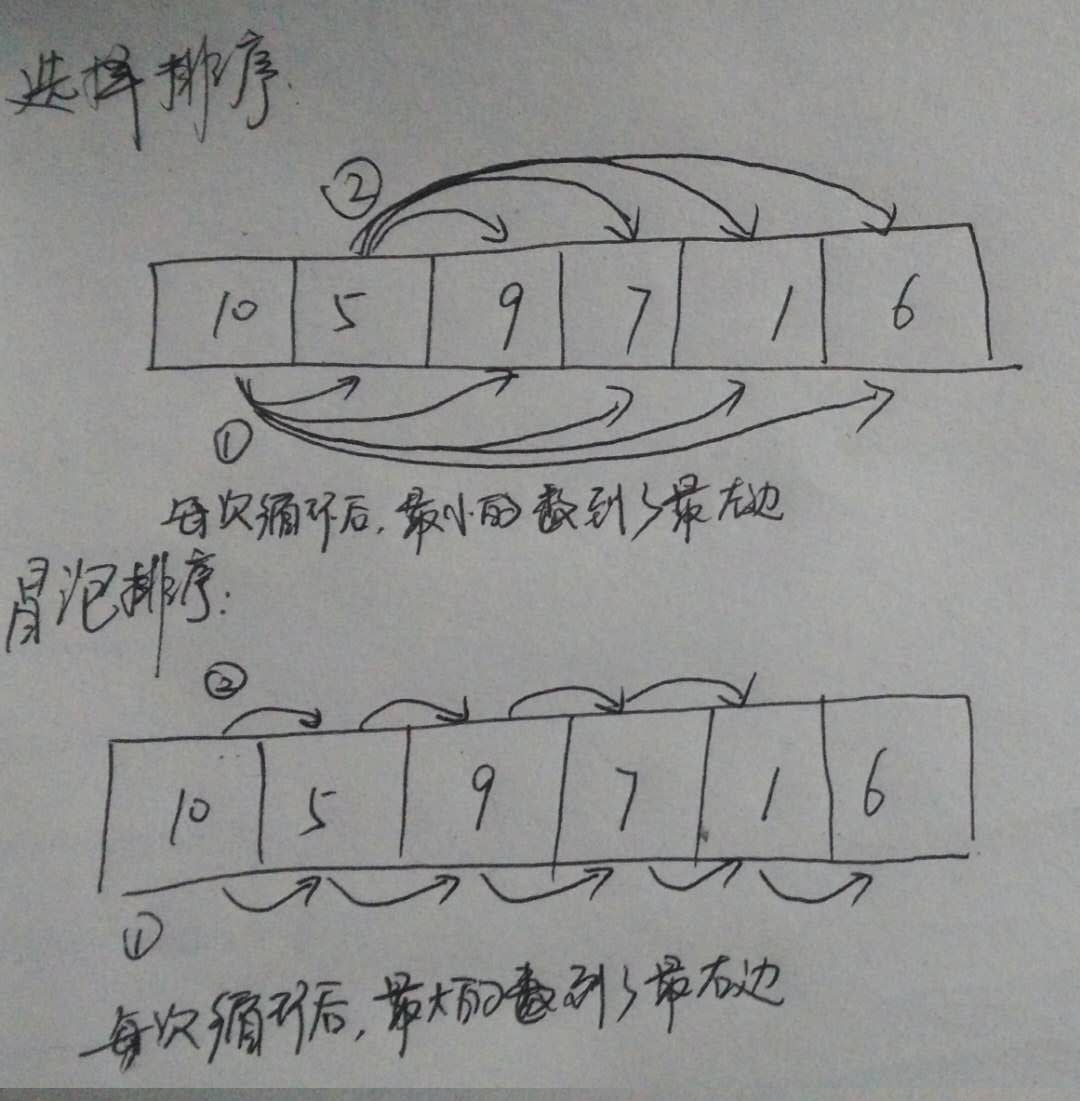 选择排序.
②
10 5 9 7 1 6
①
每次循环后,最小的数到了最左边
冒泡排序.
②
10 5 9 7 1 6
①
每次循环后,最大的数到了最右边